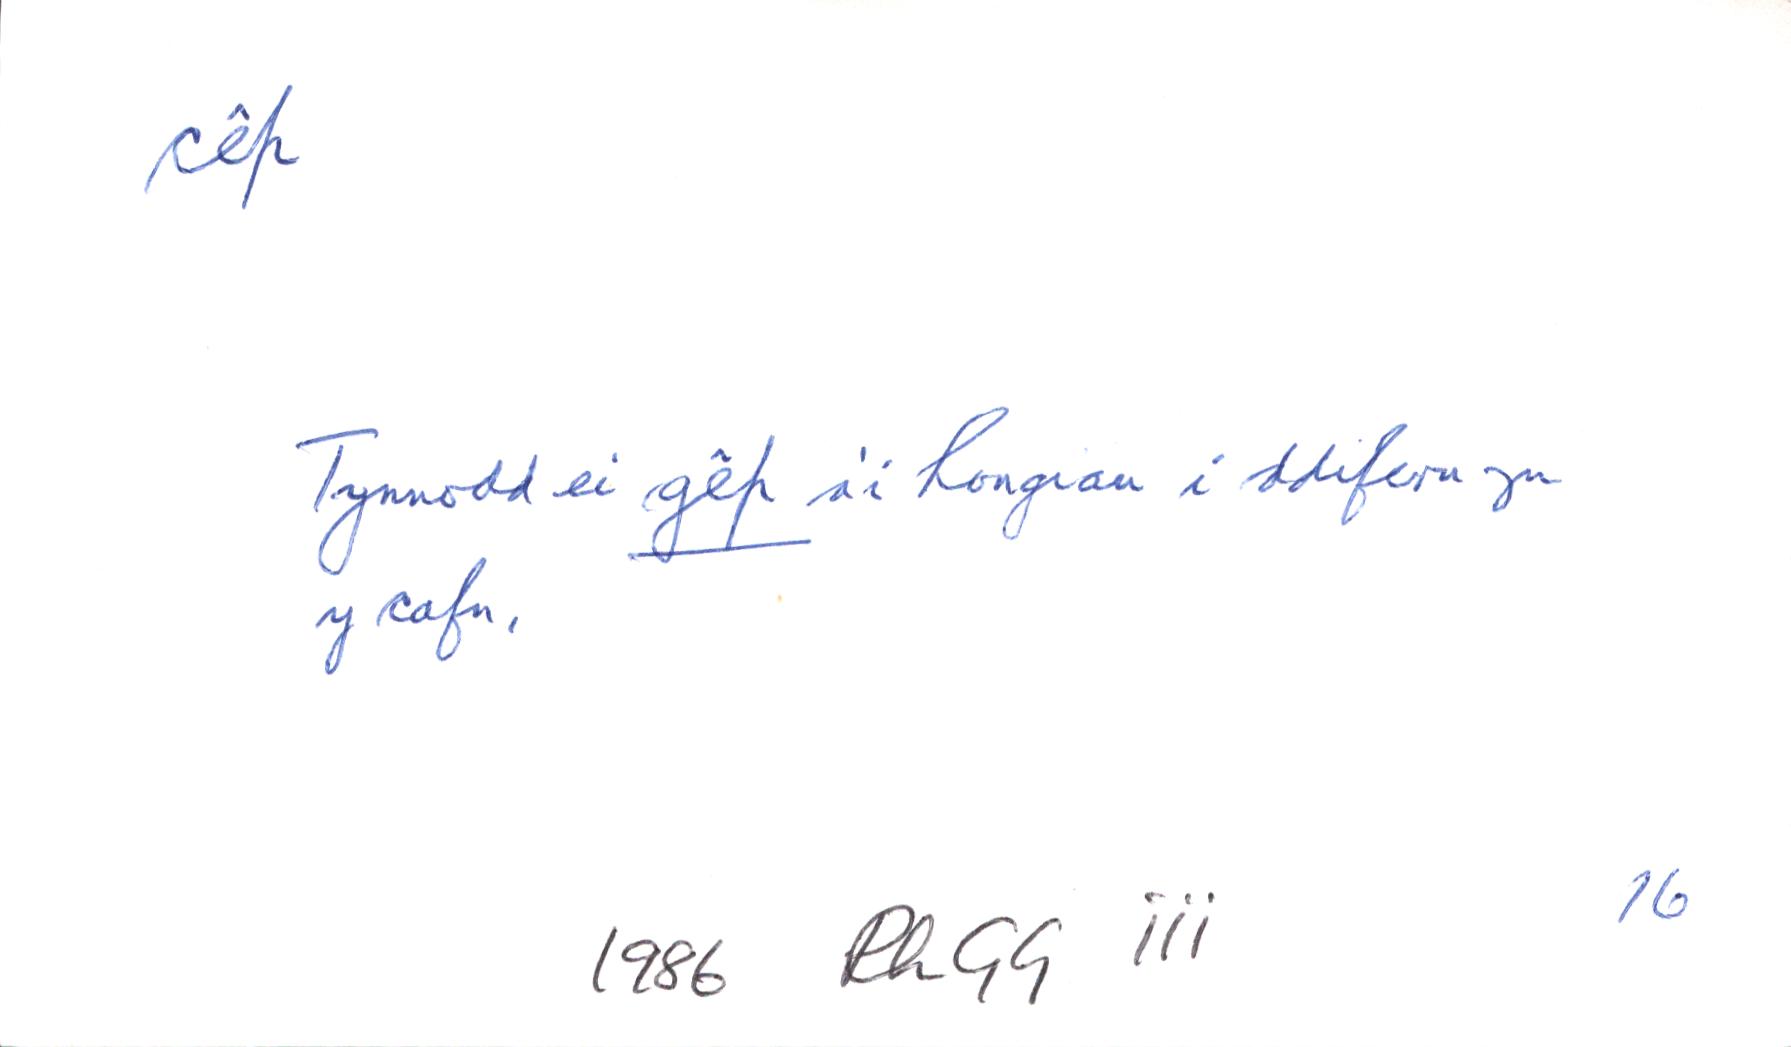 cêp
Tynnodd ei gêp a'i hongian i ddiferu yn
y cafn.
16
1986 RhGG iii